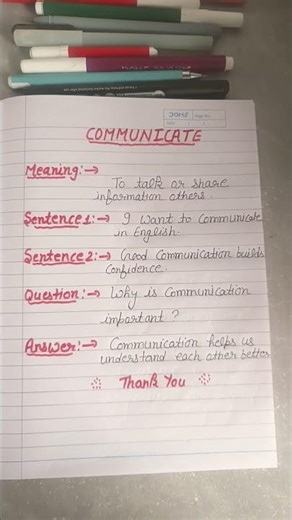 COMMUNICATE
Meaning:→
To talk or share
information others.
Sentence1:→ I want to Communicate
in English.
Sentence2:→ Good Communication builds
Confidence.
Question:→ Why is Communication
important ?
Answer:→ Communication helps us
understand each other better
Thank You